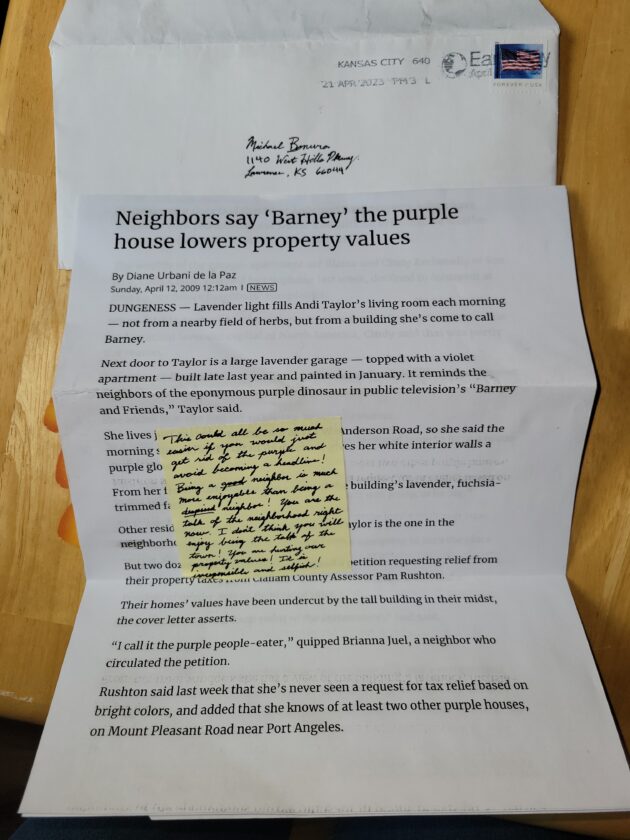 KANSAS CITY 640
21 APR 2023 PM 3 L
FOREVER / USA
Michael Bonura
1140 West Hills Pkwy
Lawrence, KS 66044
Neighbors say ‘Barney’ the purple
house lowers property values
By Diane Urbani de la Paz
Sunday, April 12, 2009 12:12am | NEWS
DUNGENESS — Lavender light fills Andi Taylor’s living room each morning
— not from a nearby field of herbs, but from a building she’s come to call
Barney.
Next door to Taylor is a large lavender garage — topped with a violet
apartment — built late last year and painted in January. It reminds the
neighbors of the eponymous purple dinosaur in public television’s “Barney
and Friends,” Taylor said.
She lives
Anderson Road, so she said the
morning
her white interior walls a
purple
From her
building’s lavender, fuchsia-
trimmed
Other
Taylor is the one in the
But two
petition requesting relief from
their property taxes from Clallam County Assessor Pam Rushton.
Their homes’ values have been undercut by the tall building in their midst,
the cover letter asserts.
“I call it the purple people-eater,” quipped Brianna Juel, a neighbor who
circulated the petition.
Rushton said last week that she’s never seen a request for tax relief based on
bright colors, and added that she knows of at least two other purple houses,
on Mount Pleasant Road near Port Angeles.
This could all be so much
easier if you would just
get rid of the purple and
avoid becoming a headline!
Being a good neighbor is much
more enjoyable than being a
despised neighbor! You are the
talk of the neighborhood right
now. I don't think you will
enjoy being the talk of the
town! You are hurting our
property values! It is
irresponsible and selfish!